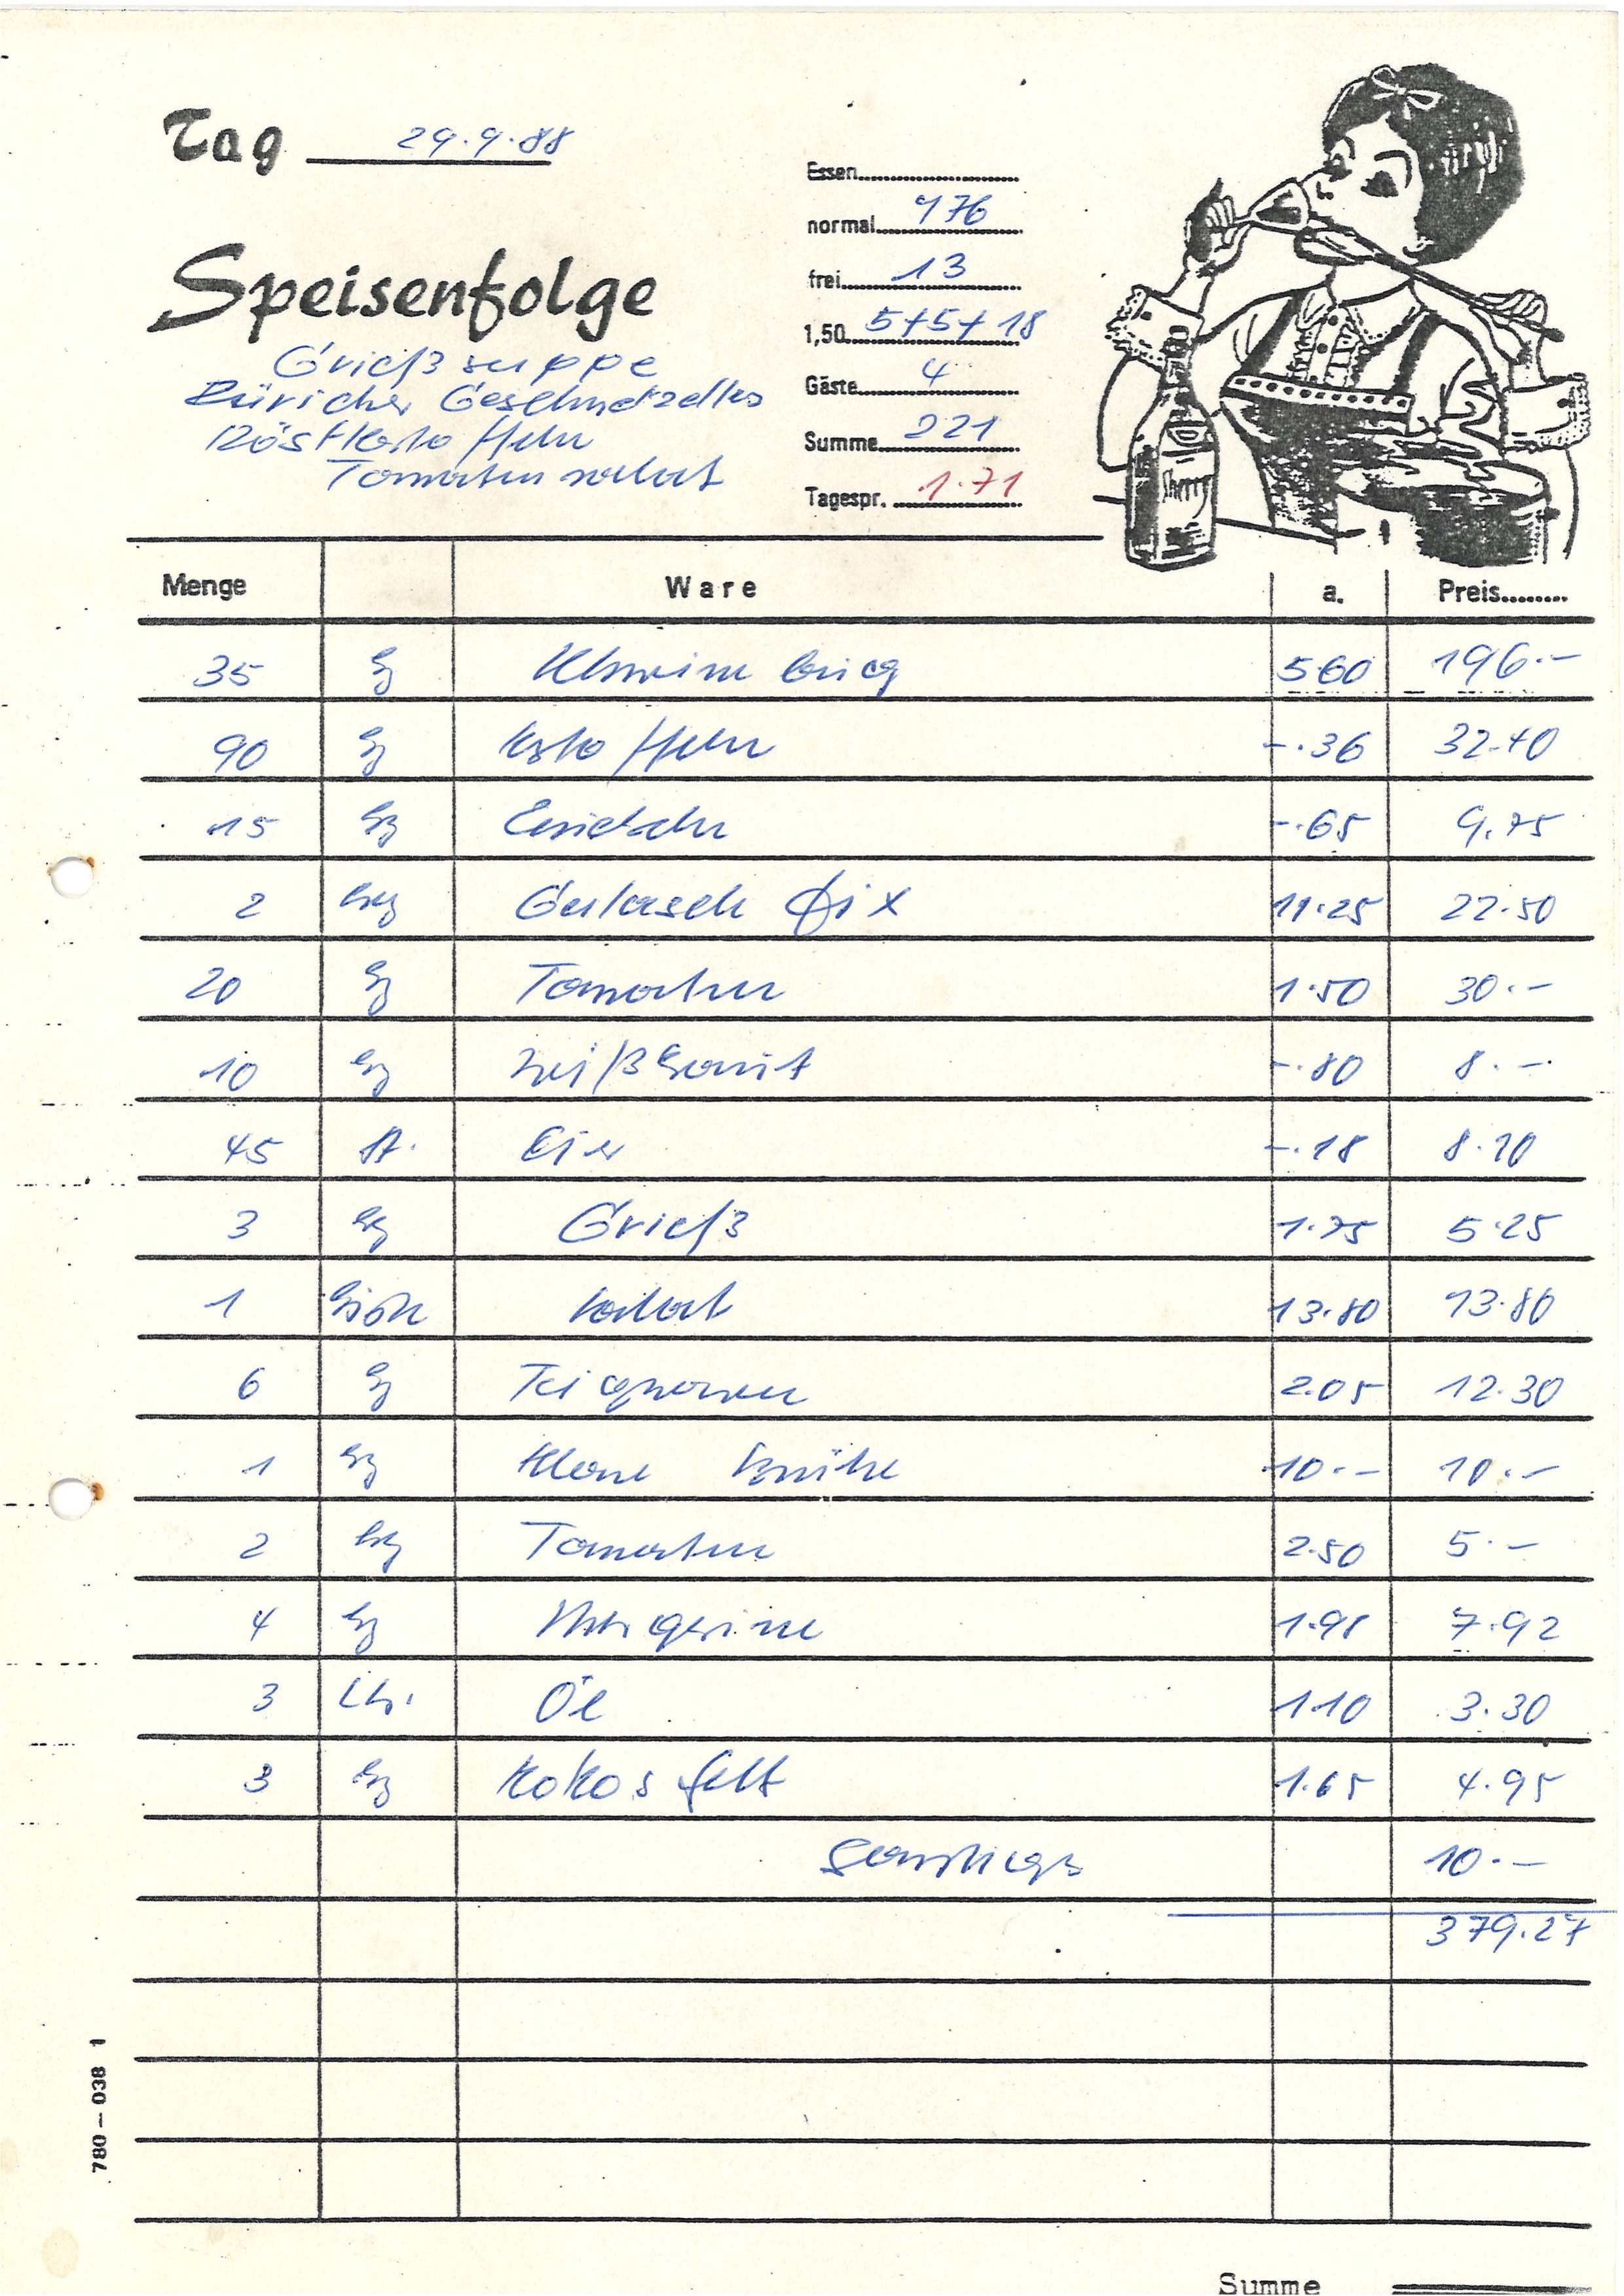 Tag 29.9.88
Speisenfolge
Grießsuppe
Züricher Geschnetzeltes
Röstkartoffeln
Tomatensalat
Essen
normal 176
frei 13
1,50 5+5+18
Gäste 4
Summe 221
Tagespr. 1.71
Sherry
Menge Ware a. Preis
35 kg 5.60 196.-
90 kg Kartoffeln -.36 32.40
15 kg Zwiebeln -.65 9.75
2 kg Gulasch fix 11.25 22.50
20 kg Tomaten 1.50 30.-
10 kg Weißkraut -.80 8.-
45 St. Eier -.18 8.10
3 kg Grieß 1.75 5.25
1 Salat 13.80 13.80
6 kg Teigwaren 2.05 12.30
1 kg Klare Brühe 10.- 10.-
2 kg Tomaten 2.50 5.-
4 kg Margarine 1.98 7.92
3 Ltr. Öl 1.10 3.30
3 kg Kokosfett 1.65 4.95
Sonstiges 10.-
379.27
780 – 038 1
Summe